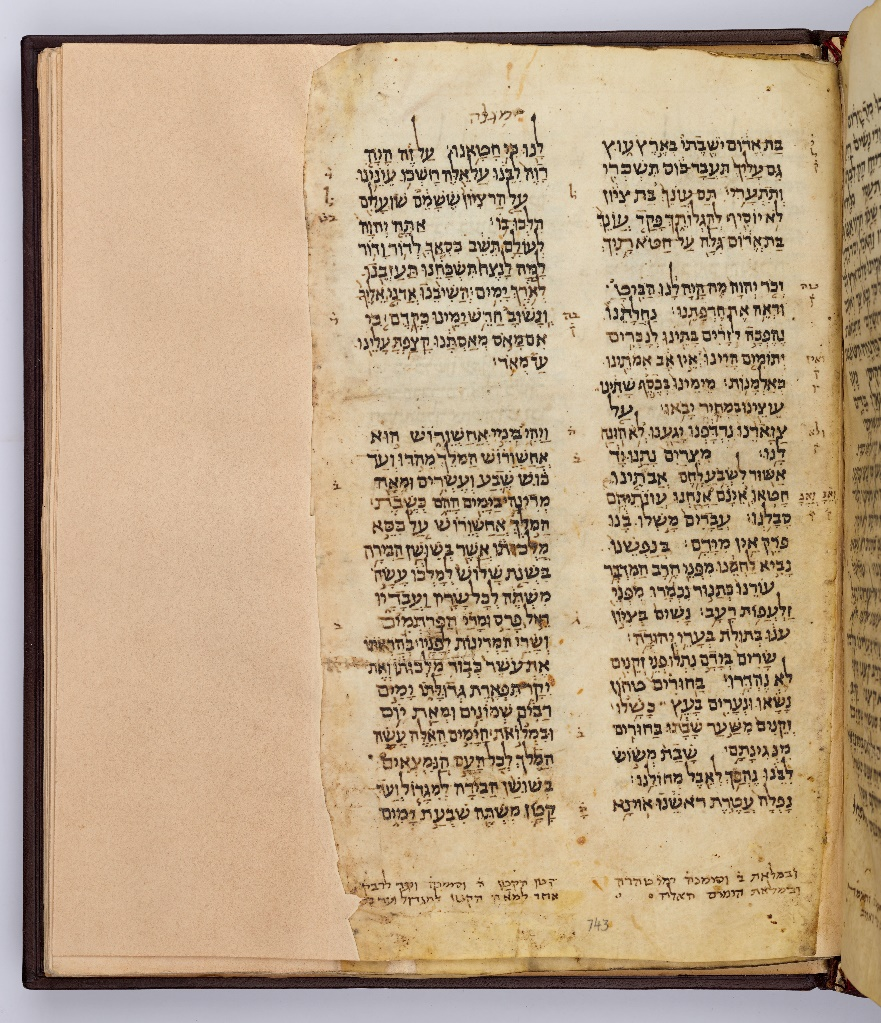 בת אדום ישבתי בארץ עוץ
גם עליך תעבר כוס תשכרי
ותתערי׃ תם עונך בת ציון
לא יוסיף להגלותך פקד עונך
בת אדום גלה על חטאתיך
זכר יהוה מה היה לנו הביטו
וראה את חרפתנו׃ נחלתנו
נהפכה לזרים בתינו לנכרים
יתומים היינו אין אב אמתינו
כאלמנות׃ מימינו בכסף שתינו
עצינו במחיר יבאו׃ על
צוארנו נרדפנו יגענו לא הונח
לנו׃ מצרים נתנו יד
אשור לשבע לחם אבתינו
חטאו אינם אנחנו עונתיהם
סבלנו׃ עבדים משלו בנו
פרק אין מידם׃ בנפשנו
נביא לחמנו מפני חרב המדבר
עורנו כתנור נכמרו מפני
זלעפות רעב׃ נשים בציון
ענו בתולת בערי יהודה׃
שרים בידם נתלו פני זקנים
לא נהדרו׃ בחורים טחון
נשאו ונערים בעץ כשלו׃
זקנים משער שבתו בחורים
מנגינתם׃ שבת משוש
לבנו נהפך לאבל מחולנו׃
נפלה עטרת ראשנו אוי נא
לנו כי חטאנו׃ על זה היה
דוה לבנו על אלה חשכו עינינו
על הר ציון ששמם שועלים
הלכו בו׃ אתה יהוה
לעולם תשב כסאך לדור ודור
למה לנצח תשכחנו תעזבנו
לארך ימים׃ השיבנו אדני אליך
ונשוב חדש ימינו כקדם׃ כי
אם מאס מאסתנו קצפת עלינו
עד מאד׃
ויהי בימי אחשורוש הוא
אחשורוש המלך מהדו ועד
כוש שבע ועשרים ומאה
מדינה׃ בימים ההם כשבת
המלך אחשורוש על כסא
מלכותו אשר בשושן הבירה
בשנת שלוש למלכו עשה
משתה לכל שריו ועבדיו
חיל פרס ומדי הפרתמים
ושרי המדינות לפניו׃ בהראתו
את עשר כבוד מלכותו ואת
יקר תפארת גדולתו ימים
רבים שמונים ומאת יום
ובמלואת הימים האלה עשה
המלך לכל העם הנמצאים
בשושן הבירה למגדול ועד
קטן משתה שבעת ימים
ובמלאת ב וסימנהון ימי טהרה
ובמלאת הימים האלה
743